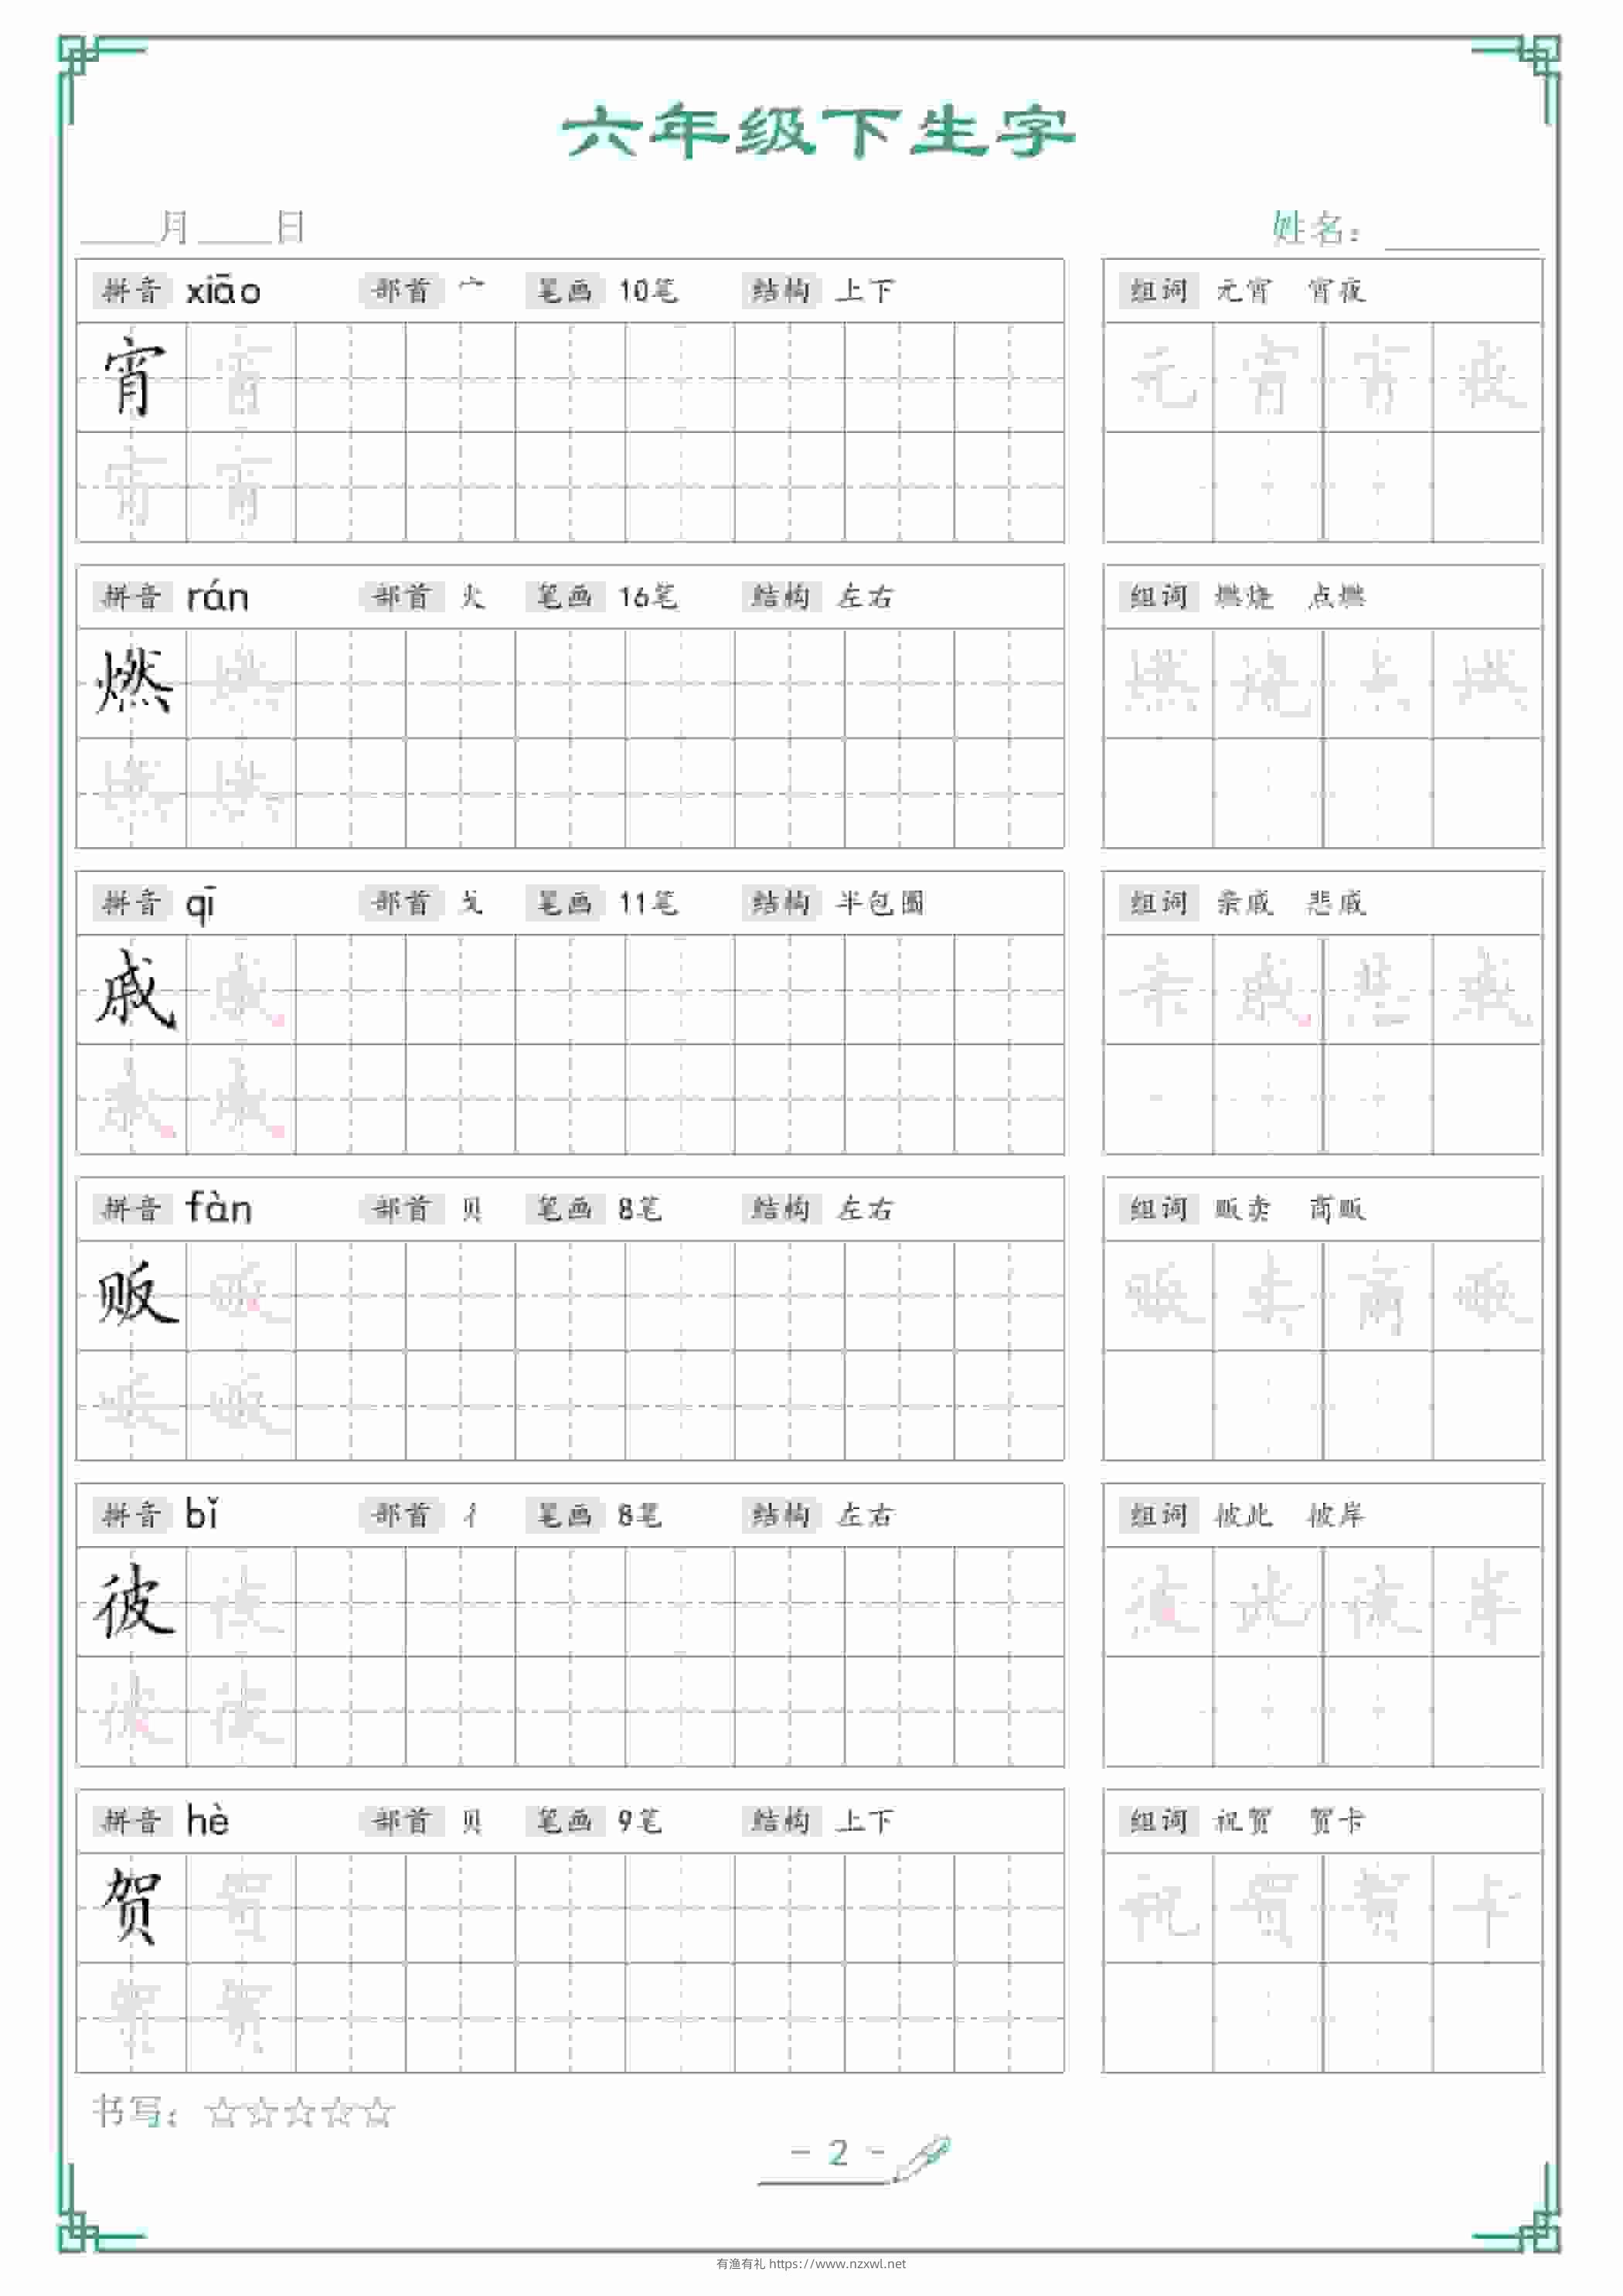 六年级下生字
月 日 姓名：
拼音 xiāo 部首 宀 笔画 10笔 结构 上下 组词 元宵 宵夜
宵 宵 元 宵 宵 夜
宵 宵
拼音 rán 部首 火 笔画 16笔 结构 左右 组词 燃烧 点燃
燃 燃 燃 烧 点 燃
燃 燃
拼音 qī 部首 戈 笔画 11笔 结构 半包围 组词 亲戚 悲戚
戚 戚 亲 戚 悲 戚
戚 戚
拼音 fàn 部首 贝 笔画 8笔 结构 左右 组词 贩卖 商贩
贩 贩 贩 卖 商 贩
贩 贩
拼音 bǐ 部首 彳 笔画 8笔 结构 左右 组词 彼此 彼岸
彼 彼 彼 此 彼 岸
彼 彼
拼音 hè 部首 贝 笔画 9笔 结构 上下 组词 祝贺 贺卡
贺 贺 祝 贺 贺 卡
贺 贺
书写：☆☆☆☆☆
- 2 -
有渔有礼 https://www.nzxwl.net